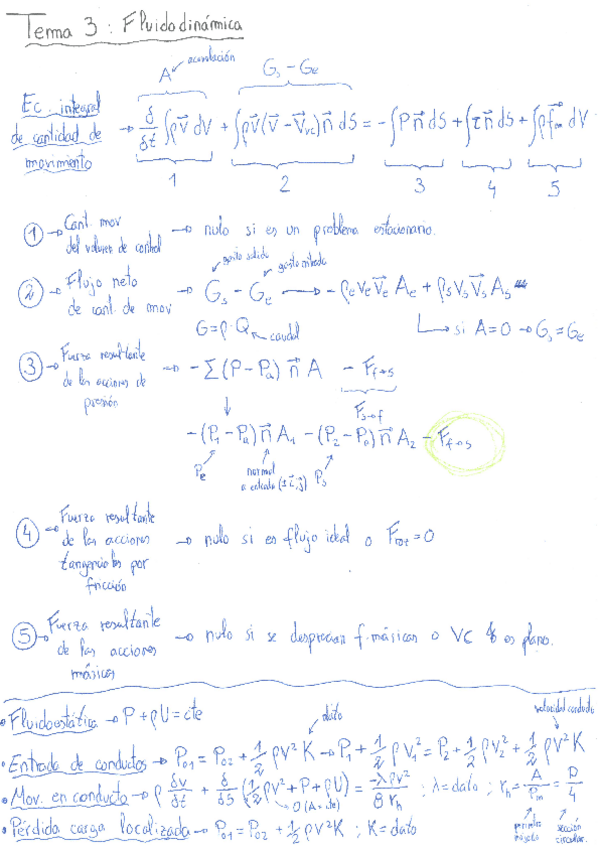 Tema 3 : Fluidodinámica
A acumulación
Gs - Ge
Ec. integral de cantidad de movimiento → δ/δt ∫ρv⃗ dV + ∫ρv⃗(v⃗ - v⃗vc)n⃗ dS = -∫P n⃗ dS + ∫τ n⃗ dS + ∫ρf⃗m dV
1 2 3 4 5
① → Cant. mov del volumen de control → nulo si es un problema estacionario.
gasto salida gasto entrada
② → Flujo neto de cant. de mov → Gs - Ge → -ρe ve v⃗e Ae + ρs vs v⃗s As
G = ρ·Q caudal
si A=0 → Gs = Ge
③ → Fuerza resultante de las acciones de presión → -Σ(P-Pa) n⃗ A - Ff→s
Fs→f
-(P1-Pa) n⃗ A1 - (P2-Pa) n⃗ A2 - Ff→s
Pe normal a entrada (±i⃗,j⃗) Ps
④ → Fuerza resultante de las acciones tangenciales por fricción → nulo si es flujo ideal o Froz = 0
⑤ → Fuerza resultante de las acciones másicas → nulo si se desprecian f. másicas o VC es plano.
• Fluidoestática → P + ρU = cte
dato
velocidad conducto
• Entrada de conductos → P01 = P02 + 1/2 ρv² K → P1 + 1/2 ρv1² = P2 + 1/2 ρv2² + 1/2 ρv² K
• Mov. en conducto → ρ δv/δt + δ/δS (1/2 ρv² + P + ρU) = -λρv²/8rh ; λ = dato ; rh = A/Pm = D/4
0 (A = cte)
perímetro mojado
sección circular.
• Pérdida carga localizada → P01 = P02 + 1/2 ρv² K ; K = dato